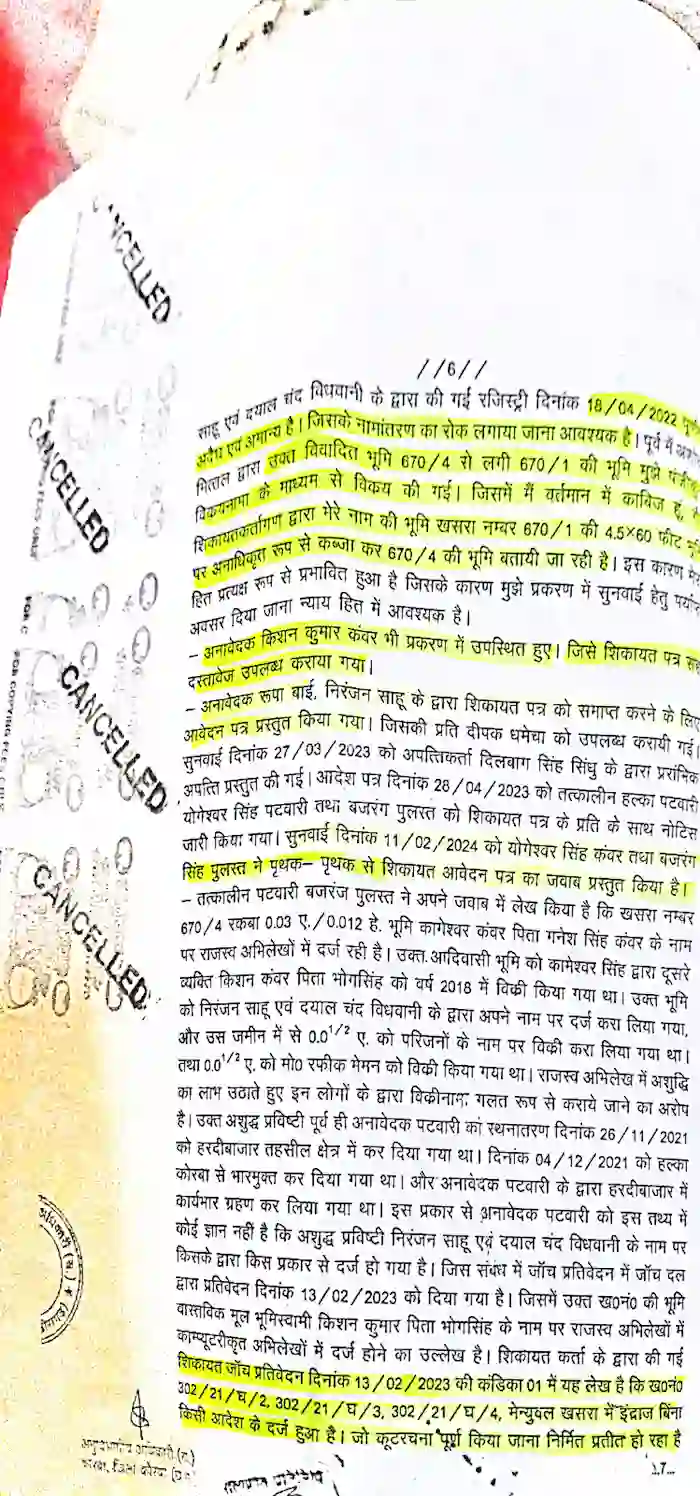 CANCELLED
CANCELLED
CANCELLED
CANCELLED
//6//
साहू एवं दयाल चंद विधवानी के द्वारा की गई रजिस्ट्री दिनांक 18/04/2022
अवैध एवं अमान्य है। जिसके नामांतरण का रोक लगाया जाना आवश्यक है। पूर्व में
मित्तल द्वारा उक्त विवादित भूमि 670/4 से लगी 670/1 की भूमि मुझे
विकयनामा के माध्यम से विकय की गई। जिसमें मैं वर्तमान में काबिज हूं,
शिकायतकर्तागण द्वारा मेरे नाम की भूमि खसरा नम्बर 670/1 की 4.5×60 फीट
पर अनाधिकृत रूप से कब्जा कर 670/4 की भूमि बतायी जा रही है। इस कारण
हित प्रत्यक्ष रूप से प्रभावित हुआ है जिसके कारण मुझे प्रकरण में सुनवाई हेतु
अवसर दिया जाना न्याय हित में आवश्यक है।
– अनावेदक किशन कुमार कंवर भी प्रकरण में उपस्थित हुए। जिसे शिकायत पत्र
दस्तावेज उपलब्ध कराया गया।
– अनावेदक रूपा बाई, निरंजन साहू के द्वारा शिकायत पत्र को समाप्त करने के लिए
आवेदन पत्र प्रस्तुत किया गया। जिसकी प्रति दीपक धमेचा को उपलब्ध करायी गई।
सुनवाई दिनांक 27/03/2023 को अपत्तिकर्ता दिलबाग सिंह सिंधु के द्वारा प्ररांभिक
अपत्ति प्रस्तुत की गई। आदेश पत्र दिनांक 28/04/2023 को तत्कालीन हल्का पटवारी
योगेश्वर सिंह पटवारी तथा बजरंग पुलस्त को शिकायत पत्र के प्रति के साथ नोटिस
जारी किया गया। सुनवाई दिनांक 11/02/2024 को योगेश्वर सिंह कंवर तथा बजरंग
सिंह पुलस्त ने पृथक– पृथक से शिकायत आवेदन पत्र का जवाब प्रस्तुत किया है।
– तत्कालीन पटवारी बजरंज पुलस्त ने अपने जवाब में लेख किया है कि खसरा नम्बर
670/4 रकबा 0.03 ए./0.012 हे. भूमि कागेश्वर कंवर पिता गनेश सिंह कंवर के नाम
पर राजस्व अभिलेखों में दर्ज रही है। उक्त आदिवासी भूमि को कामेश्वर सिंह द्वारा दूसरे
व्यक्ति किशन कंवर पिता भोगसिंह को वर्ष 2018 में विकी किया गया था। उक्त भूमि
को निरंजन साहू एवं दयाल चंद विधवानी के द्वारा अपने नाम पर दर्ज करा लिया गया,
और उस जमीन में से 0.0¹/² ए. को परिजनों के नाम पर विकी करा लिया गया था।
तथा 0.0¹/² ए. को मो0 रफीक मेमन को विकी किया गया था। राजस्व अभिलेख में अशुद्धि
का लाभ उठाते हुए इन लोगों के द्वारा विकीनामा गलत रूप से कराये जाने का अरोप
है। उक्त अशुद्ध प्रविष्टी पूर्व ही अनावेदक पटवारी का स्थनातरण दिनांक 26/11/2021
को हरदीबाजार तहसील क्षेत्र में कर दिया गया था। दिनांक 04/12/2021 को हल्का
कोरबा से भारमुक्त कर दिया गया था। और अनावेदक पटवारी के द्वारा हरदीबाजार में
कार्यभार ग्रहण कर लिया गया था। इस प्रकार से अनावेदक पटवारी को इस तथ्य में
कोई ज्ञान नहीं है कि अशुद्ध प्रविष्टी निरंजन साहू एवं दयाल चंद विधवानी के नाम पर
किसके द्वारा किस प्रकार से दर्ज हो गया है। जिस संबंध में जॉच प्रतिवेदन में जॉच दल
द्वारा प्रतिवेदन दिनांक 13/02/2023 को दिया गया है। जिसमें उक्त ख0नं0 की भूमि
वास्तविक मूल भूमिस्वामी किशन कुमार पिता भोगसिंह के नाम पर राजस्व अभिलेखों में
काम्प्यूटरीकृत अभिलेखों में दर्ज होने का उल्लेख है। शिकायत कर्ता के द्वारा की गई
शिकायत जॉच प्रतिवेदन दिनांक 13/02/2023 की कंडिका 01 में यह लेख है कि ख0नं0
302/21/घ/2, 302/21/घ/3, 302/21/घ/4, मेन्युवल खसरा में इंद्राज बिंना
किसी आदेश के दर्ज हुआ है। जो कूटरचना पूर्ण किया जाना निर्मित प्रतीत हो रहा है